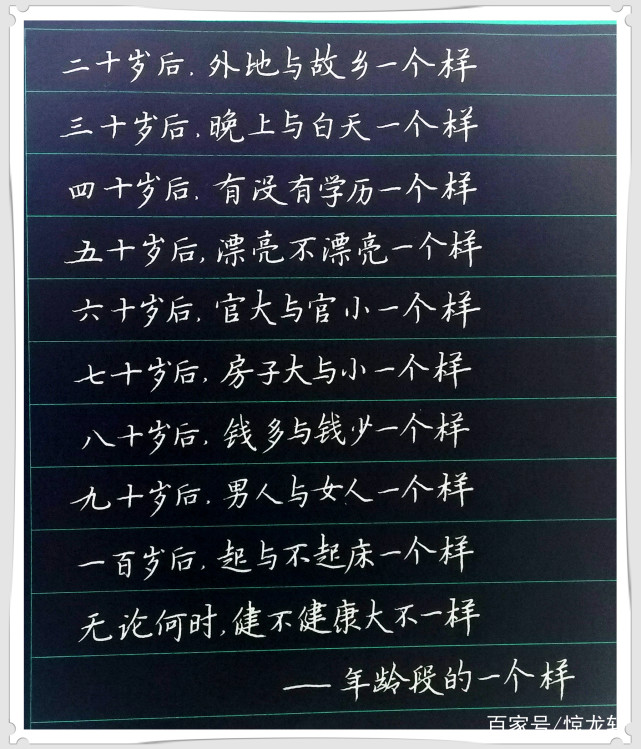 二十岁后,外地与故乡一个样
三十岁后,晚上与白天一个样
四十岁后,有没有学历一个样
五十岁后,漂亮不漂亮一个样
六十岁后,官大与官小一个样
七十岁后,房子大与小一个样
八十岁后,钱多与钱少一个样
九十岁后,男人与女人一个样
一百岁后,起与不起床一个样
无论何时,健不健康大不一样
——年龄段的一个样
百家号/惊龙轩